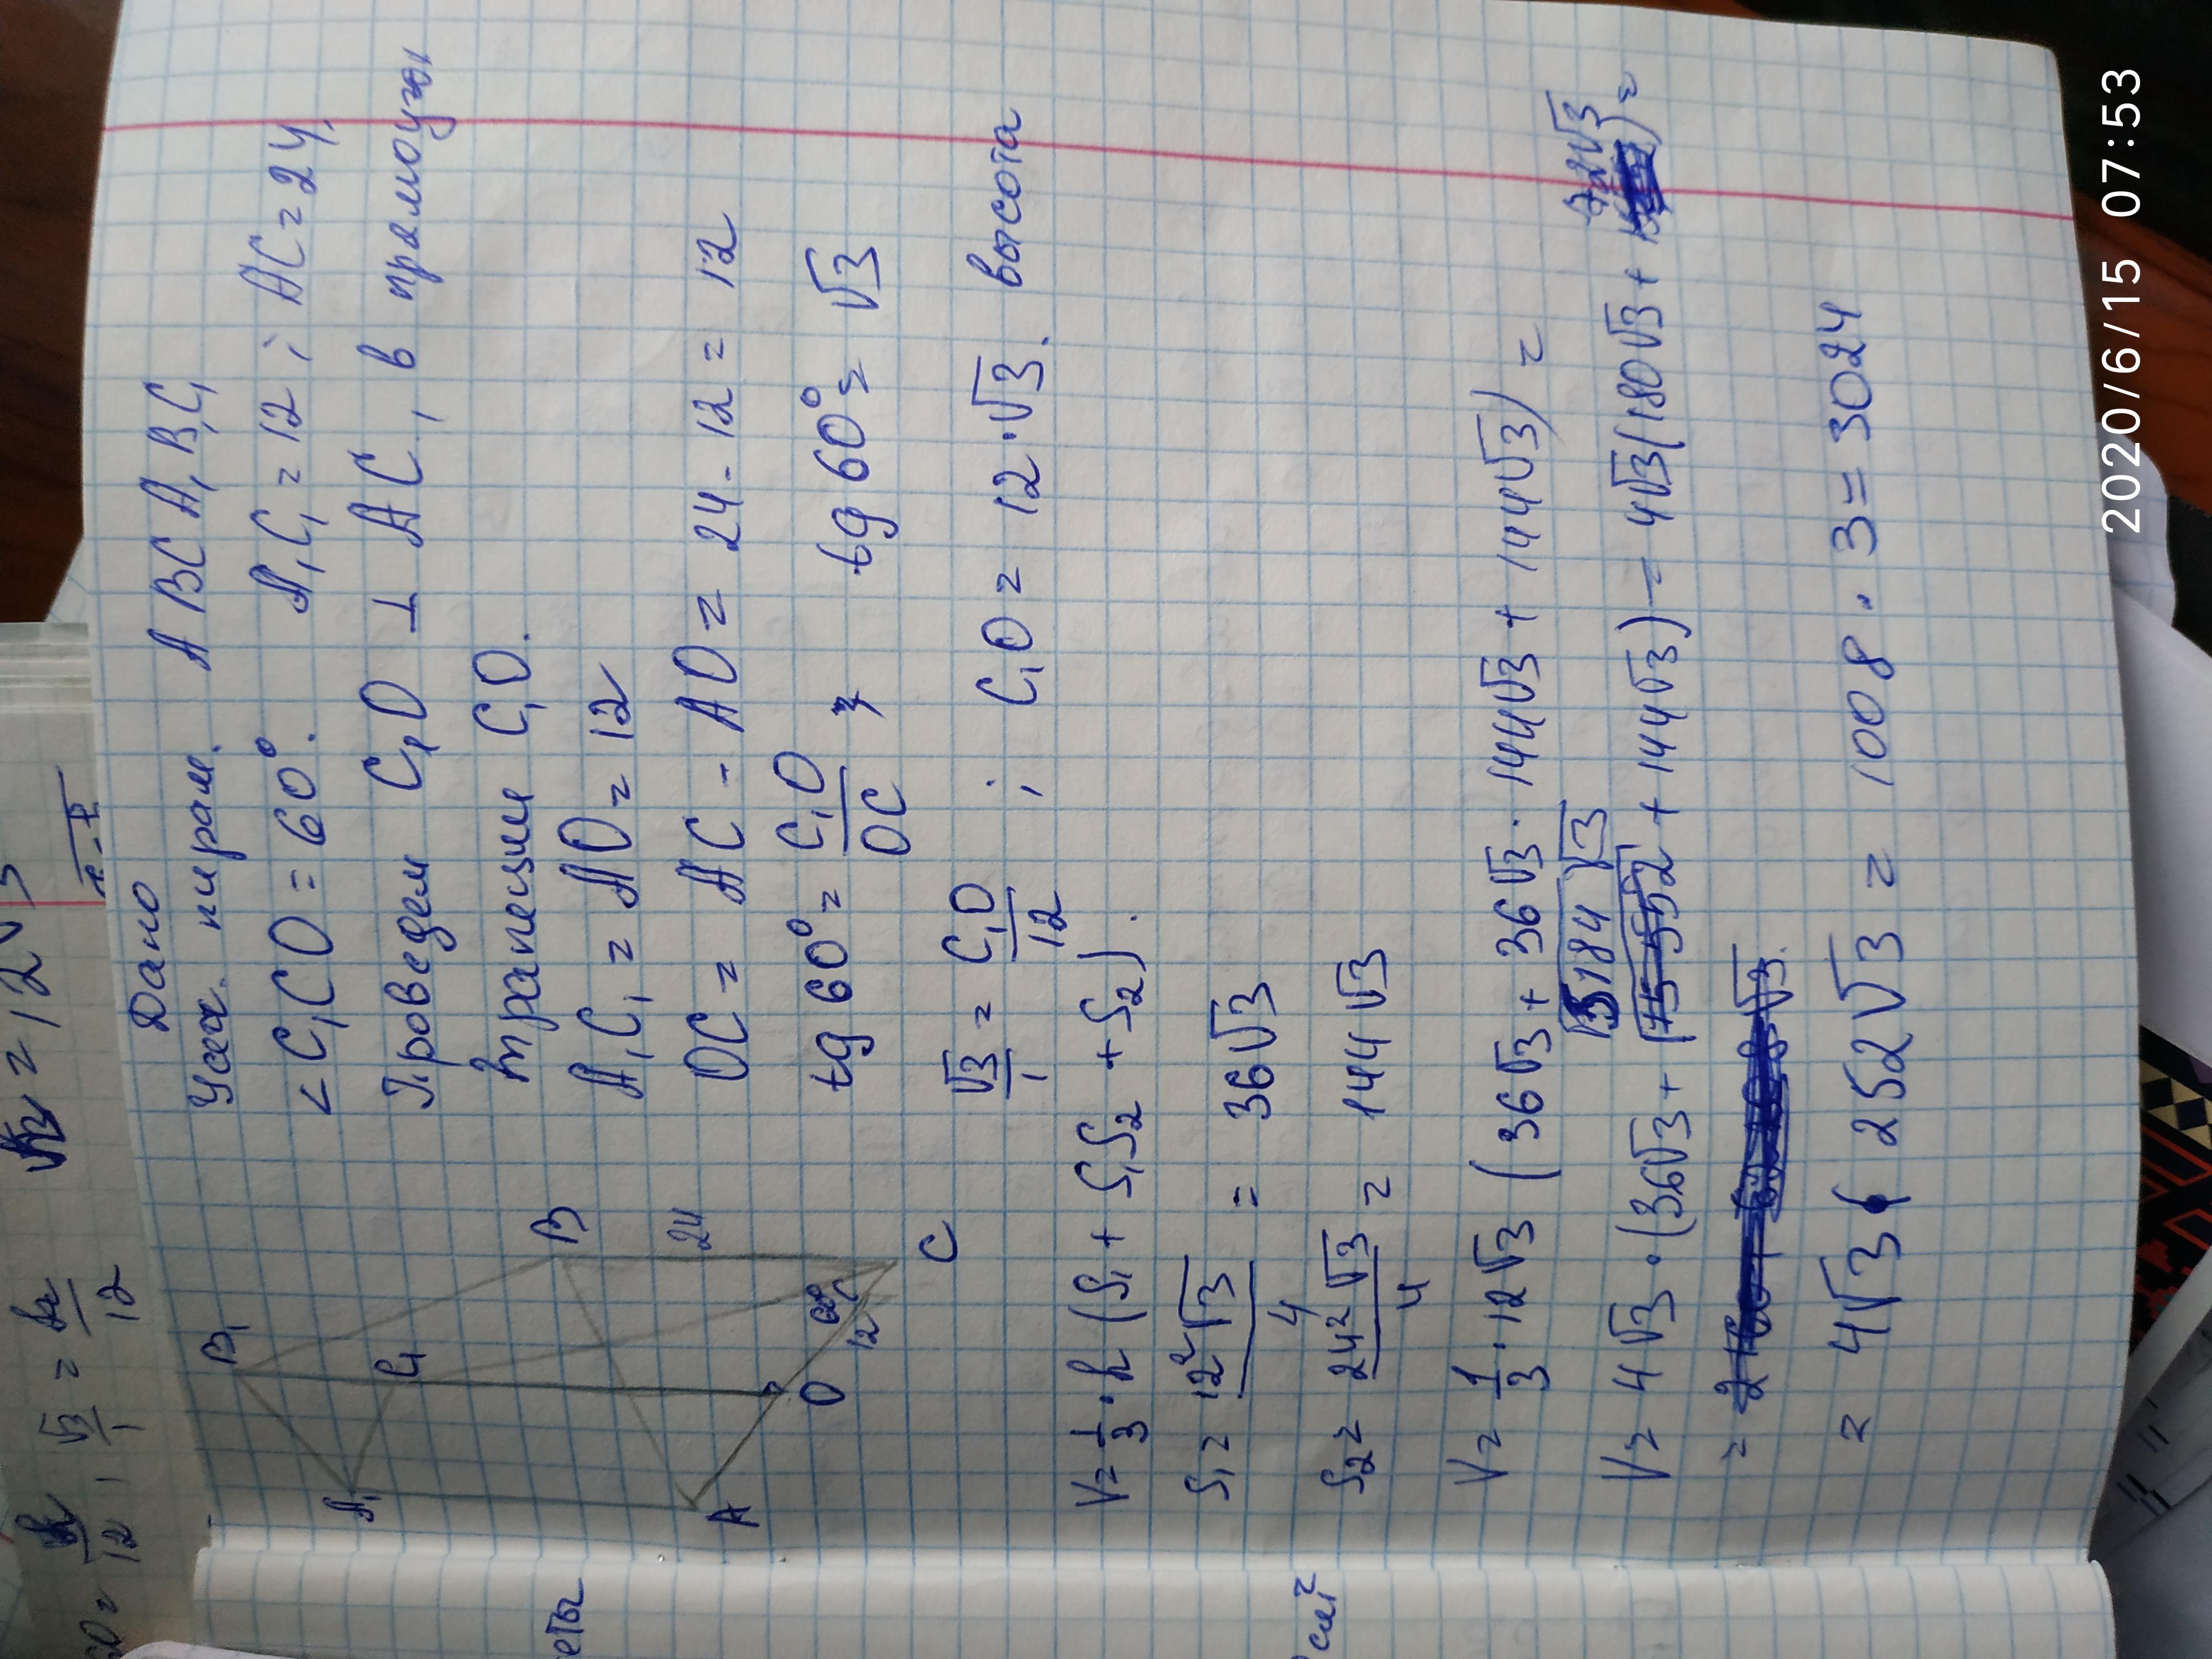 √3 = 12√3
60° = /12 , √3/1 = /12
Дано
Усеч. пирам. ABC A₁B₁C₁
<C₁CO = 60°. A₁C₁ = 12 ; AC = 24,
Проведем C₁O ⊥ AC, в прямоуг
трапеции C₁O.
A₁C₁ = AO = 12
OC = AC - AO = 24 - 12 = 12
tg 60° = C₁O/OC tg 60° = √3
√3/1 = C₁O/12 ; C₁O = 12·√3. высота
B₁
A₁
C₁
B
24
A
O
12
60°
C
V = 1/3 · h (S₁ + S₁S₂ + S₂).
S₁ = 12²√3/4 = 36√3
S₂ = 24²√3/4 = 144√3
V = 1/3 · 12√3 (36√3 + 36√3 · 144√3 + 144√3) =
5184 √3
V = 4√3 · (36√3 + √15552 + 144√3) = 4√3 (180√3 + 72√3) =
= 4√3 ( 252√3 = 1008 · 3 = 3024
еты
см²
2020/6/15 07:53